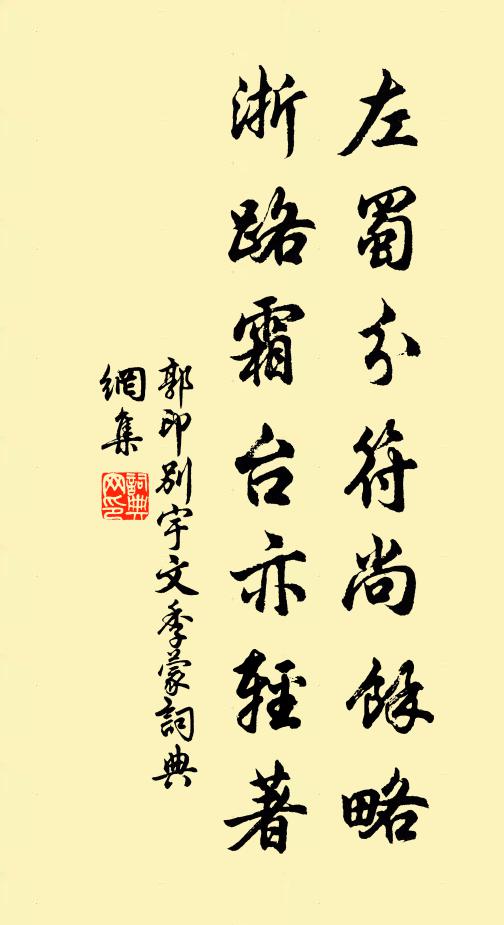 左蜀分符尚馀略
浙路霜台亦轻著
郭印别宇文季蒙词典
网集
词典网印